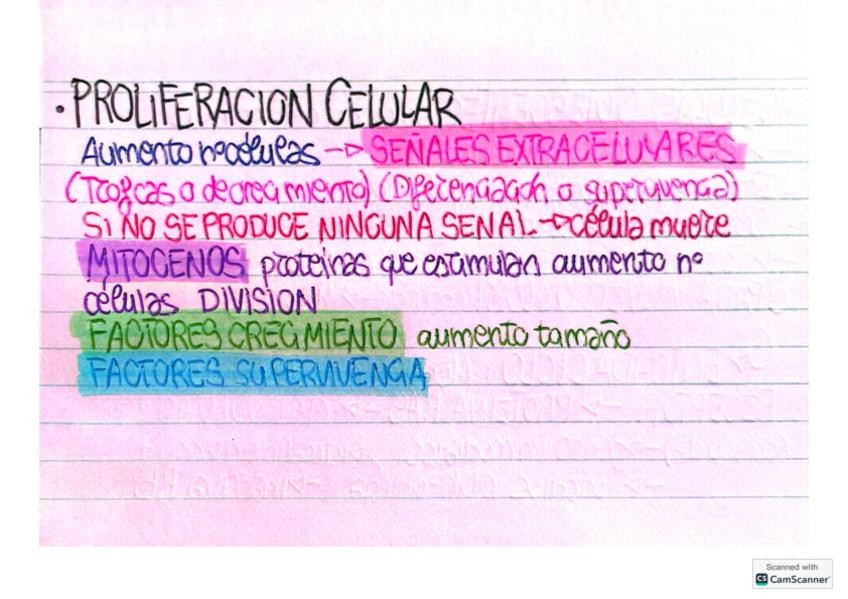 · PROLIFERACION CELULAR
Aumento nº células → SEÑALES EXTRACELULARES
(Troficas o de crecimiento) (Diferenciación o supervivencia)
SI NO SE PRODUCE NINGUNA SENAL → célula muere
MITOGENOS proteínas que estimulan aumento nº
células DIVISION
FACTORES CRECIMIENTO aumento tamaño
FACTORES SUPERVIVENCIA
Scanned with
CS CamScanner